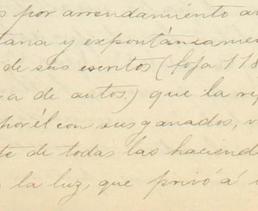 s por arrendamiento a
tana y expontáneame
de sus escritos (foja 118
a de autos) que la
por él con sus ganados, v
to de todas las haciend
la luz, que privó á